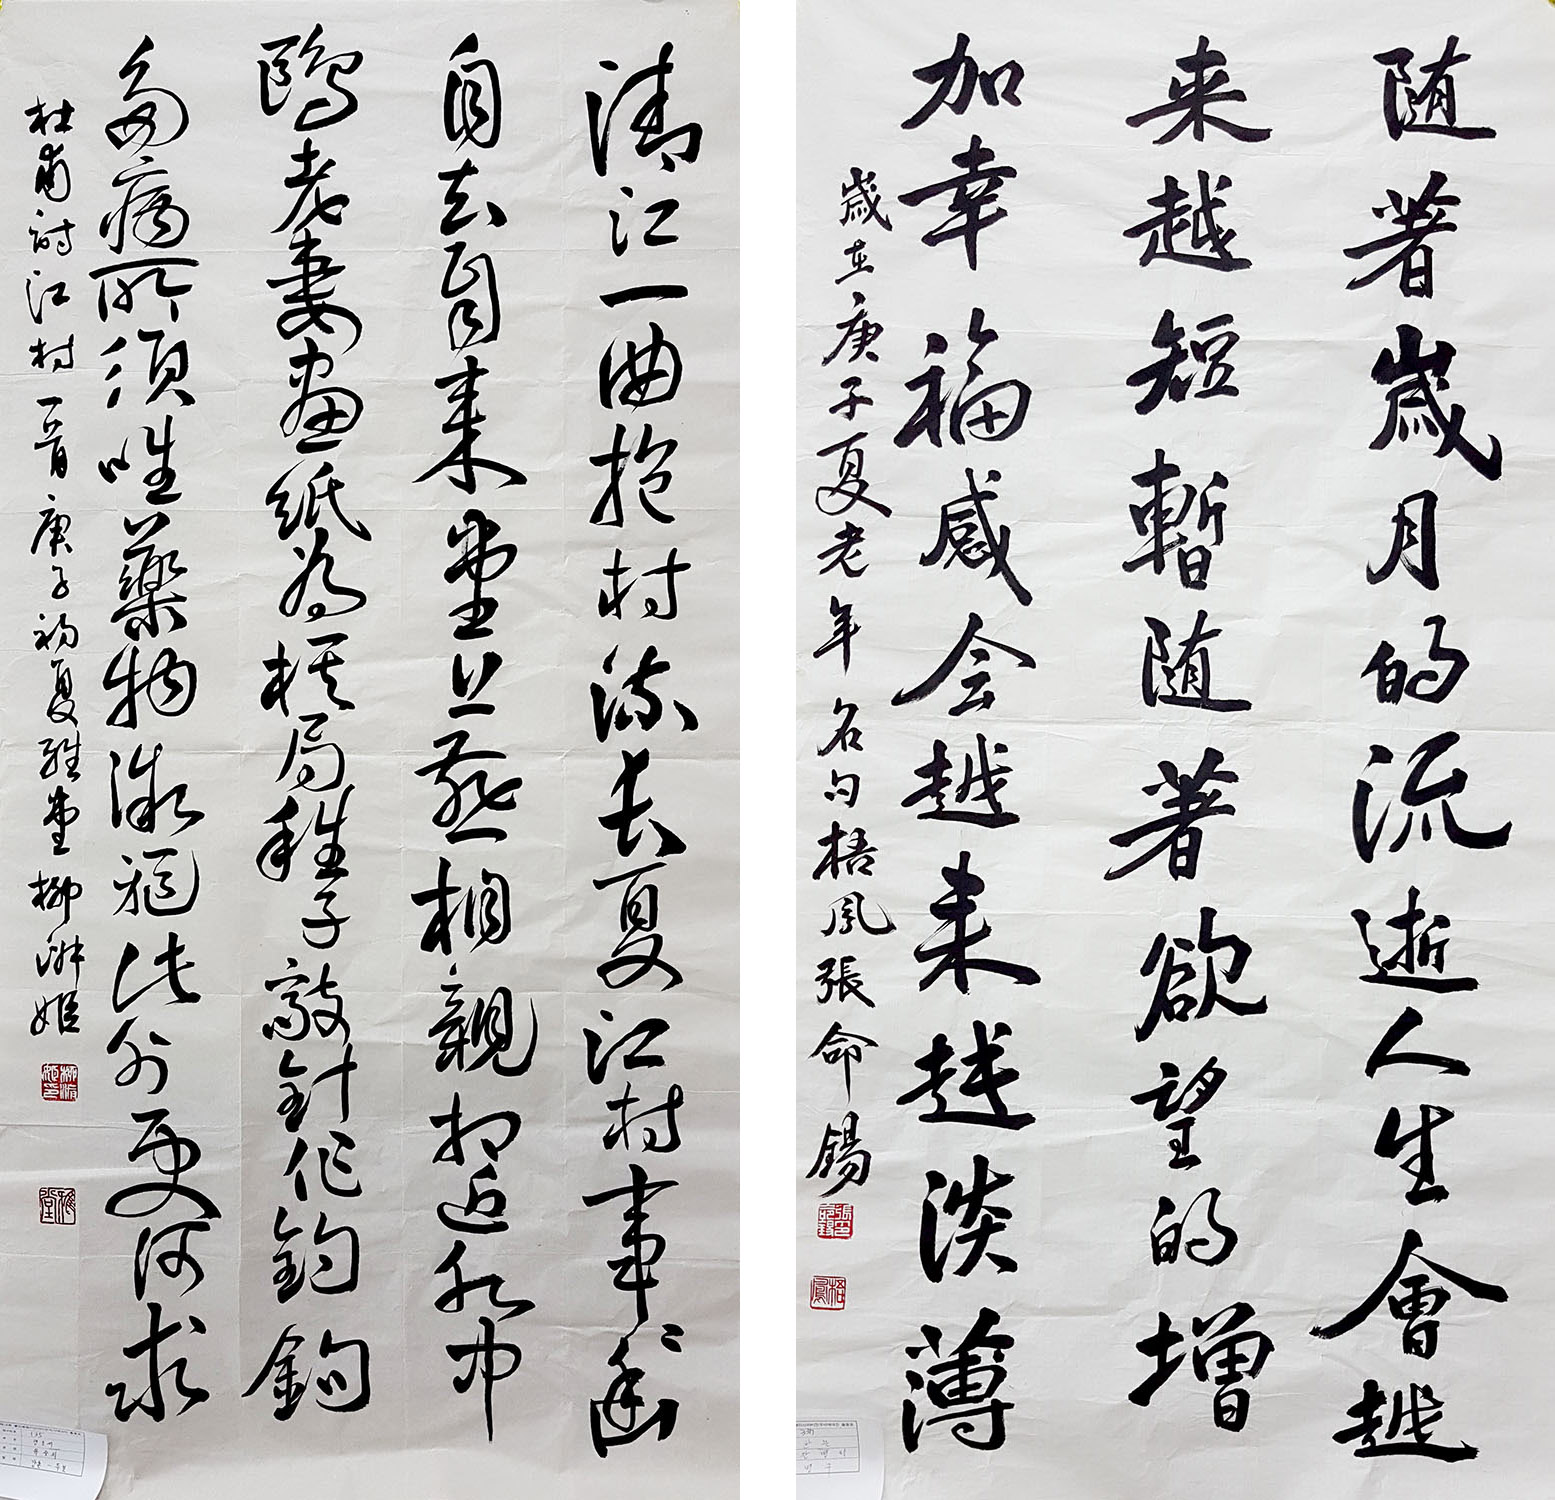 清江一曲抱村流長夏江村事〻幽
自去自来堂上燕相親相近水中
鷗老妻畫紙為棋局稚子敲針作釣鉤
多病所須唯藥物微軀此外更何求
杜甫詩江村一首庚子初夏雅堂柳淑姬
雅堂
随著歳月的流逝人生會越
来越短暫随著欲望的增
加幸福感会越来越淡薄
歳在庚子夏老年名句梧鳳張命錫
梧鳳